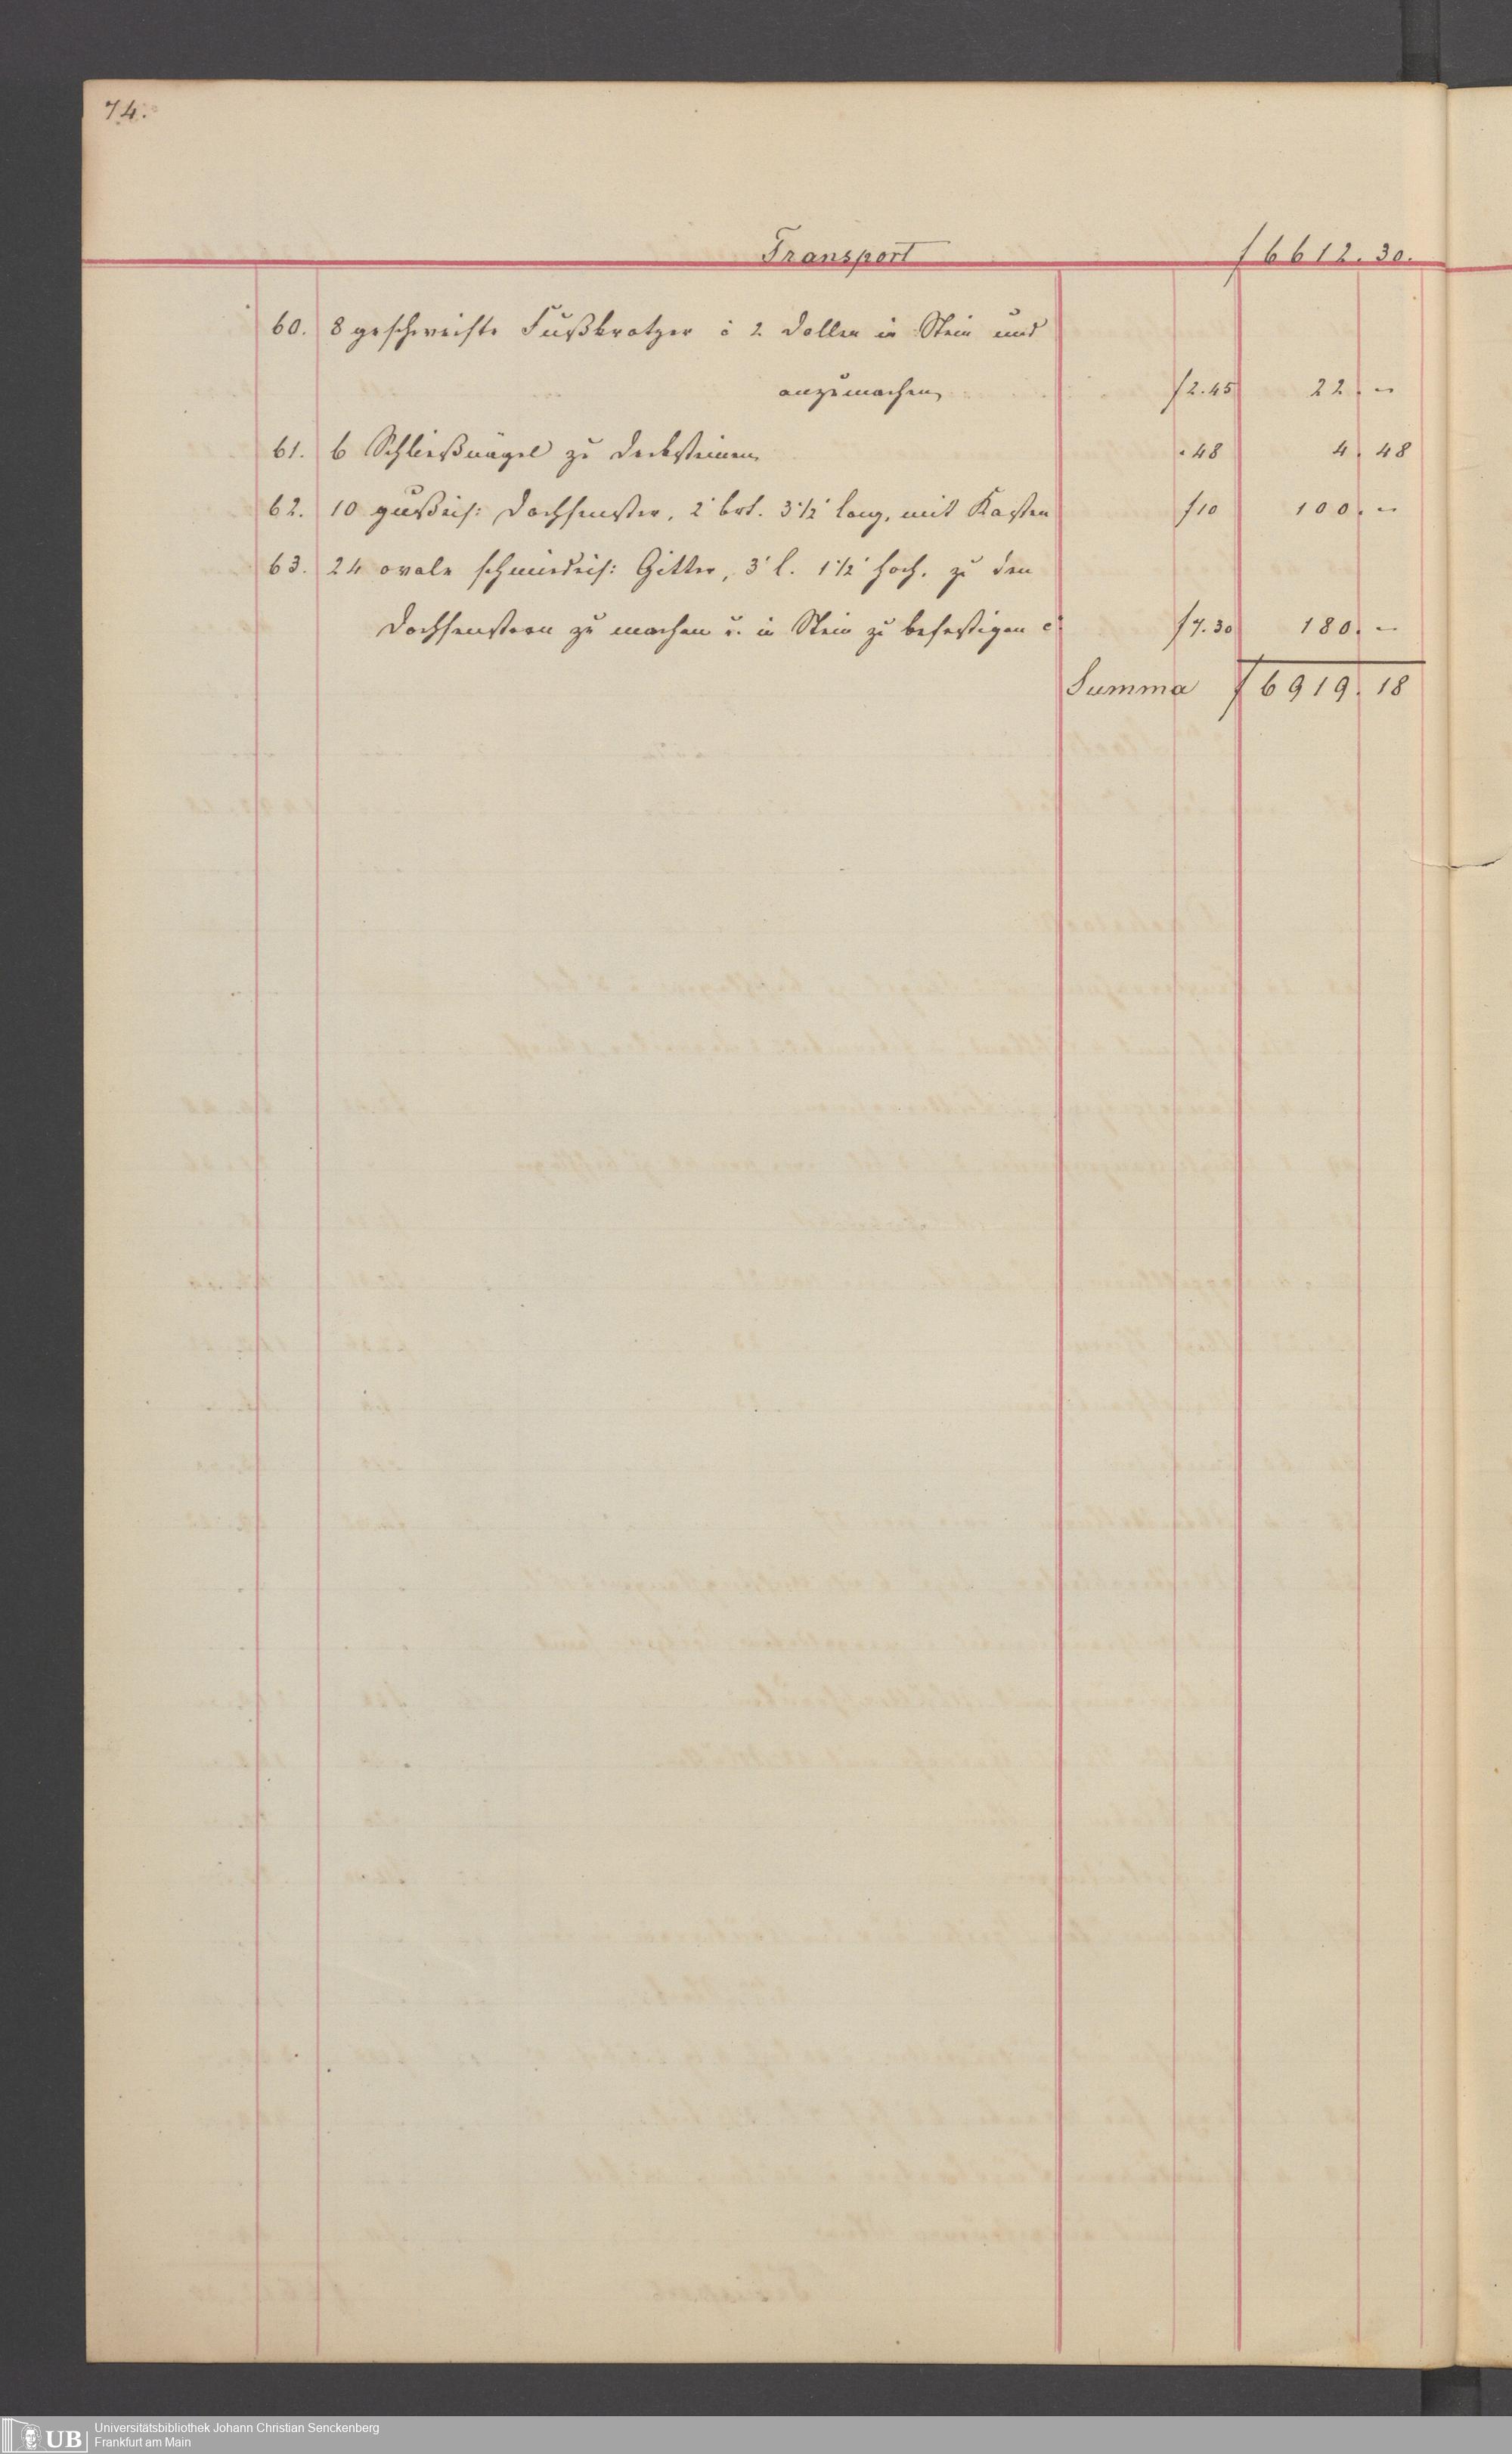 74.
Transport f 6612. 30.
60. 8 geschweifte Fußkratzer à 2 Dollen in Stein und
anzumachen f 2.45 22. –
61. 6 Schließnägel zu Decksteinen . 48 4. 48
62. 10 gußeis: Dachfenster, 2' brt. 3 1/2' lang, mit Kasten f 10 100. –
63. 24 ovale schmiedeis: Gitter, 3' l. 1 1/2' hoch, zu den
Dachfenstern zu machen u. in Stein zu befestigen à f 7.30 180. –
Summa f 6919. 18
UB Universitätsbibliothek Johann Christian Senckenberg
Frankfurt am Main